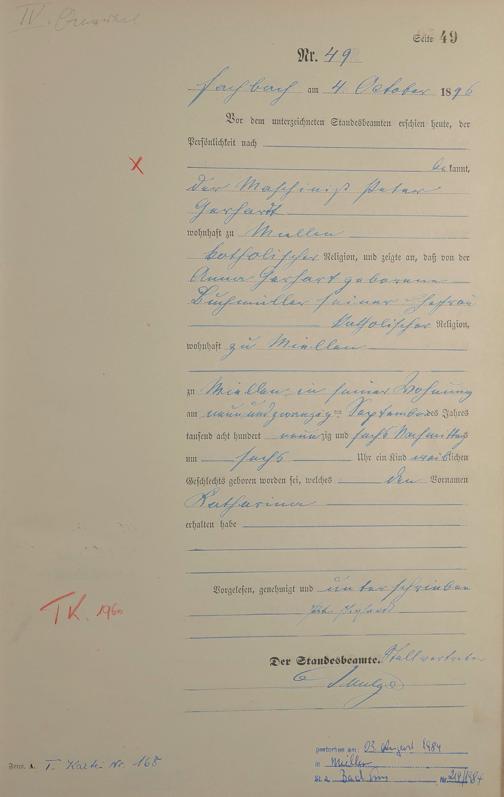 IV.
Seite 49
Nr. 49
Fachbach am 4. October 1896
Vor dem unterzeichneten Standesbeamten erschien heute, der
Persönlichkeit nach
be kannt,
x
der Maschinist Peter
Gerhardt
wohnhaft zu Miellen
katholischer Religion, und zeigte an, daß von der
Anna Gerhart geborene
Buchmüller seiner Ehefrau
katholischer Religion,
wohnhaft zu Miellen
zu Miellen in seiner Wohnung
am neun und zwanzigten September des Jahres
tausend acht hundert neunzig und sechs Nachmittag
um sechs Uhr ein Kind weiblichen
Geschlechts geboren worden sei, welches den Vornamen
Katharina
erhalten habe
Vorgelesen, genehmigt und unterschrieben
TK. 1960
Der Standesbeamte. Stellvertreter
gestorben am: 03. August 1984
in Miellen
St. A. Bad Ems Nr. 214/1984
Form. A. T. Kartei Nr. 168